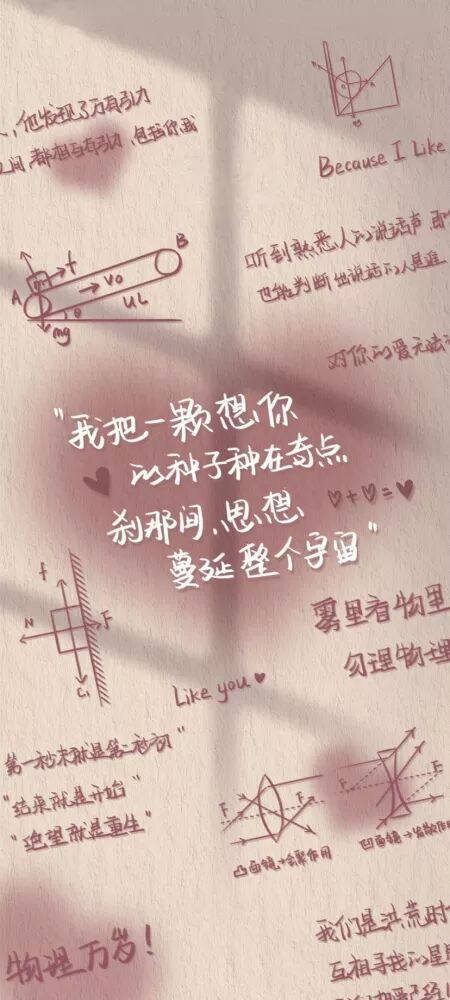 他发现了万有引力
之间,都相互有引力,包括你我
Because I Like
听到熟悉人的说话声,即
也能判断出说话的人是谁
对你的爱无法
A
B
m
f
V0
UL
θ
mg
"我把一颗想你
的种子种在奇点,
刹那间,思想,
蔓延整个宇宙"
♡+♡=♥
f
N
F
G
雾里看物里
勿理物理
Like you
第一秒末就是第二秒初"
"结束就是开始"
"绝望就是重生"
F
F
F
F
凸面镜→会聚作用
凹面镜→发散作用
物理万岁!
我们是洪荒时
互相寻找的星辰